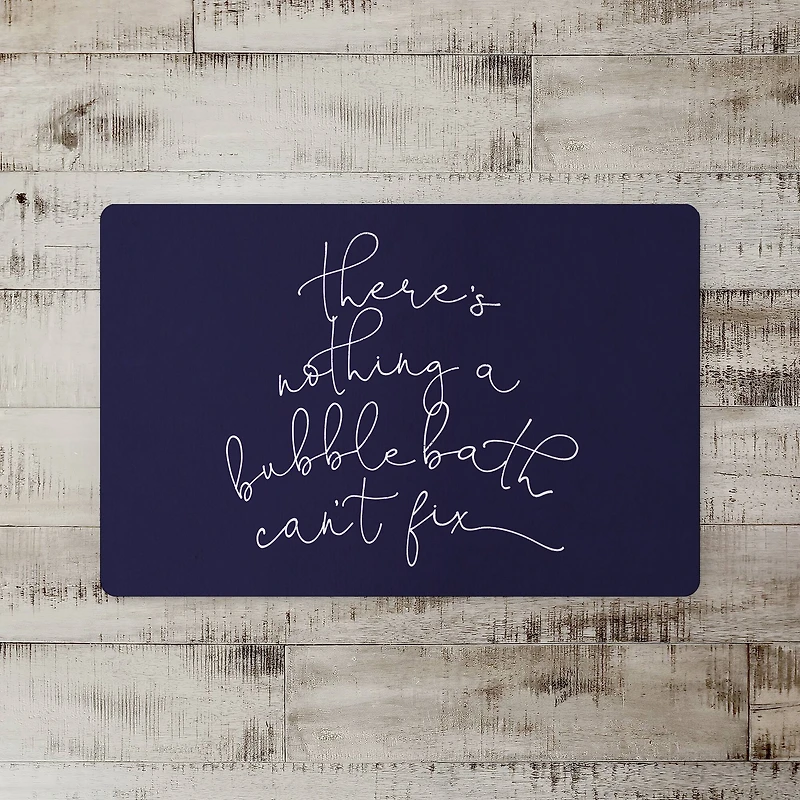 there's
nothing a
bubble bath
can't fix